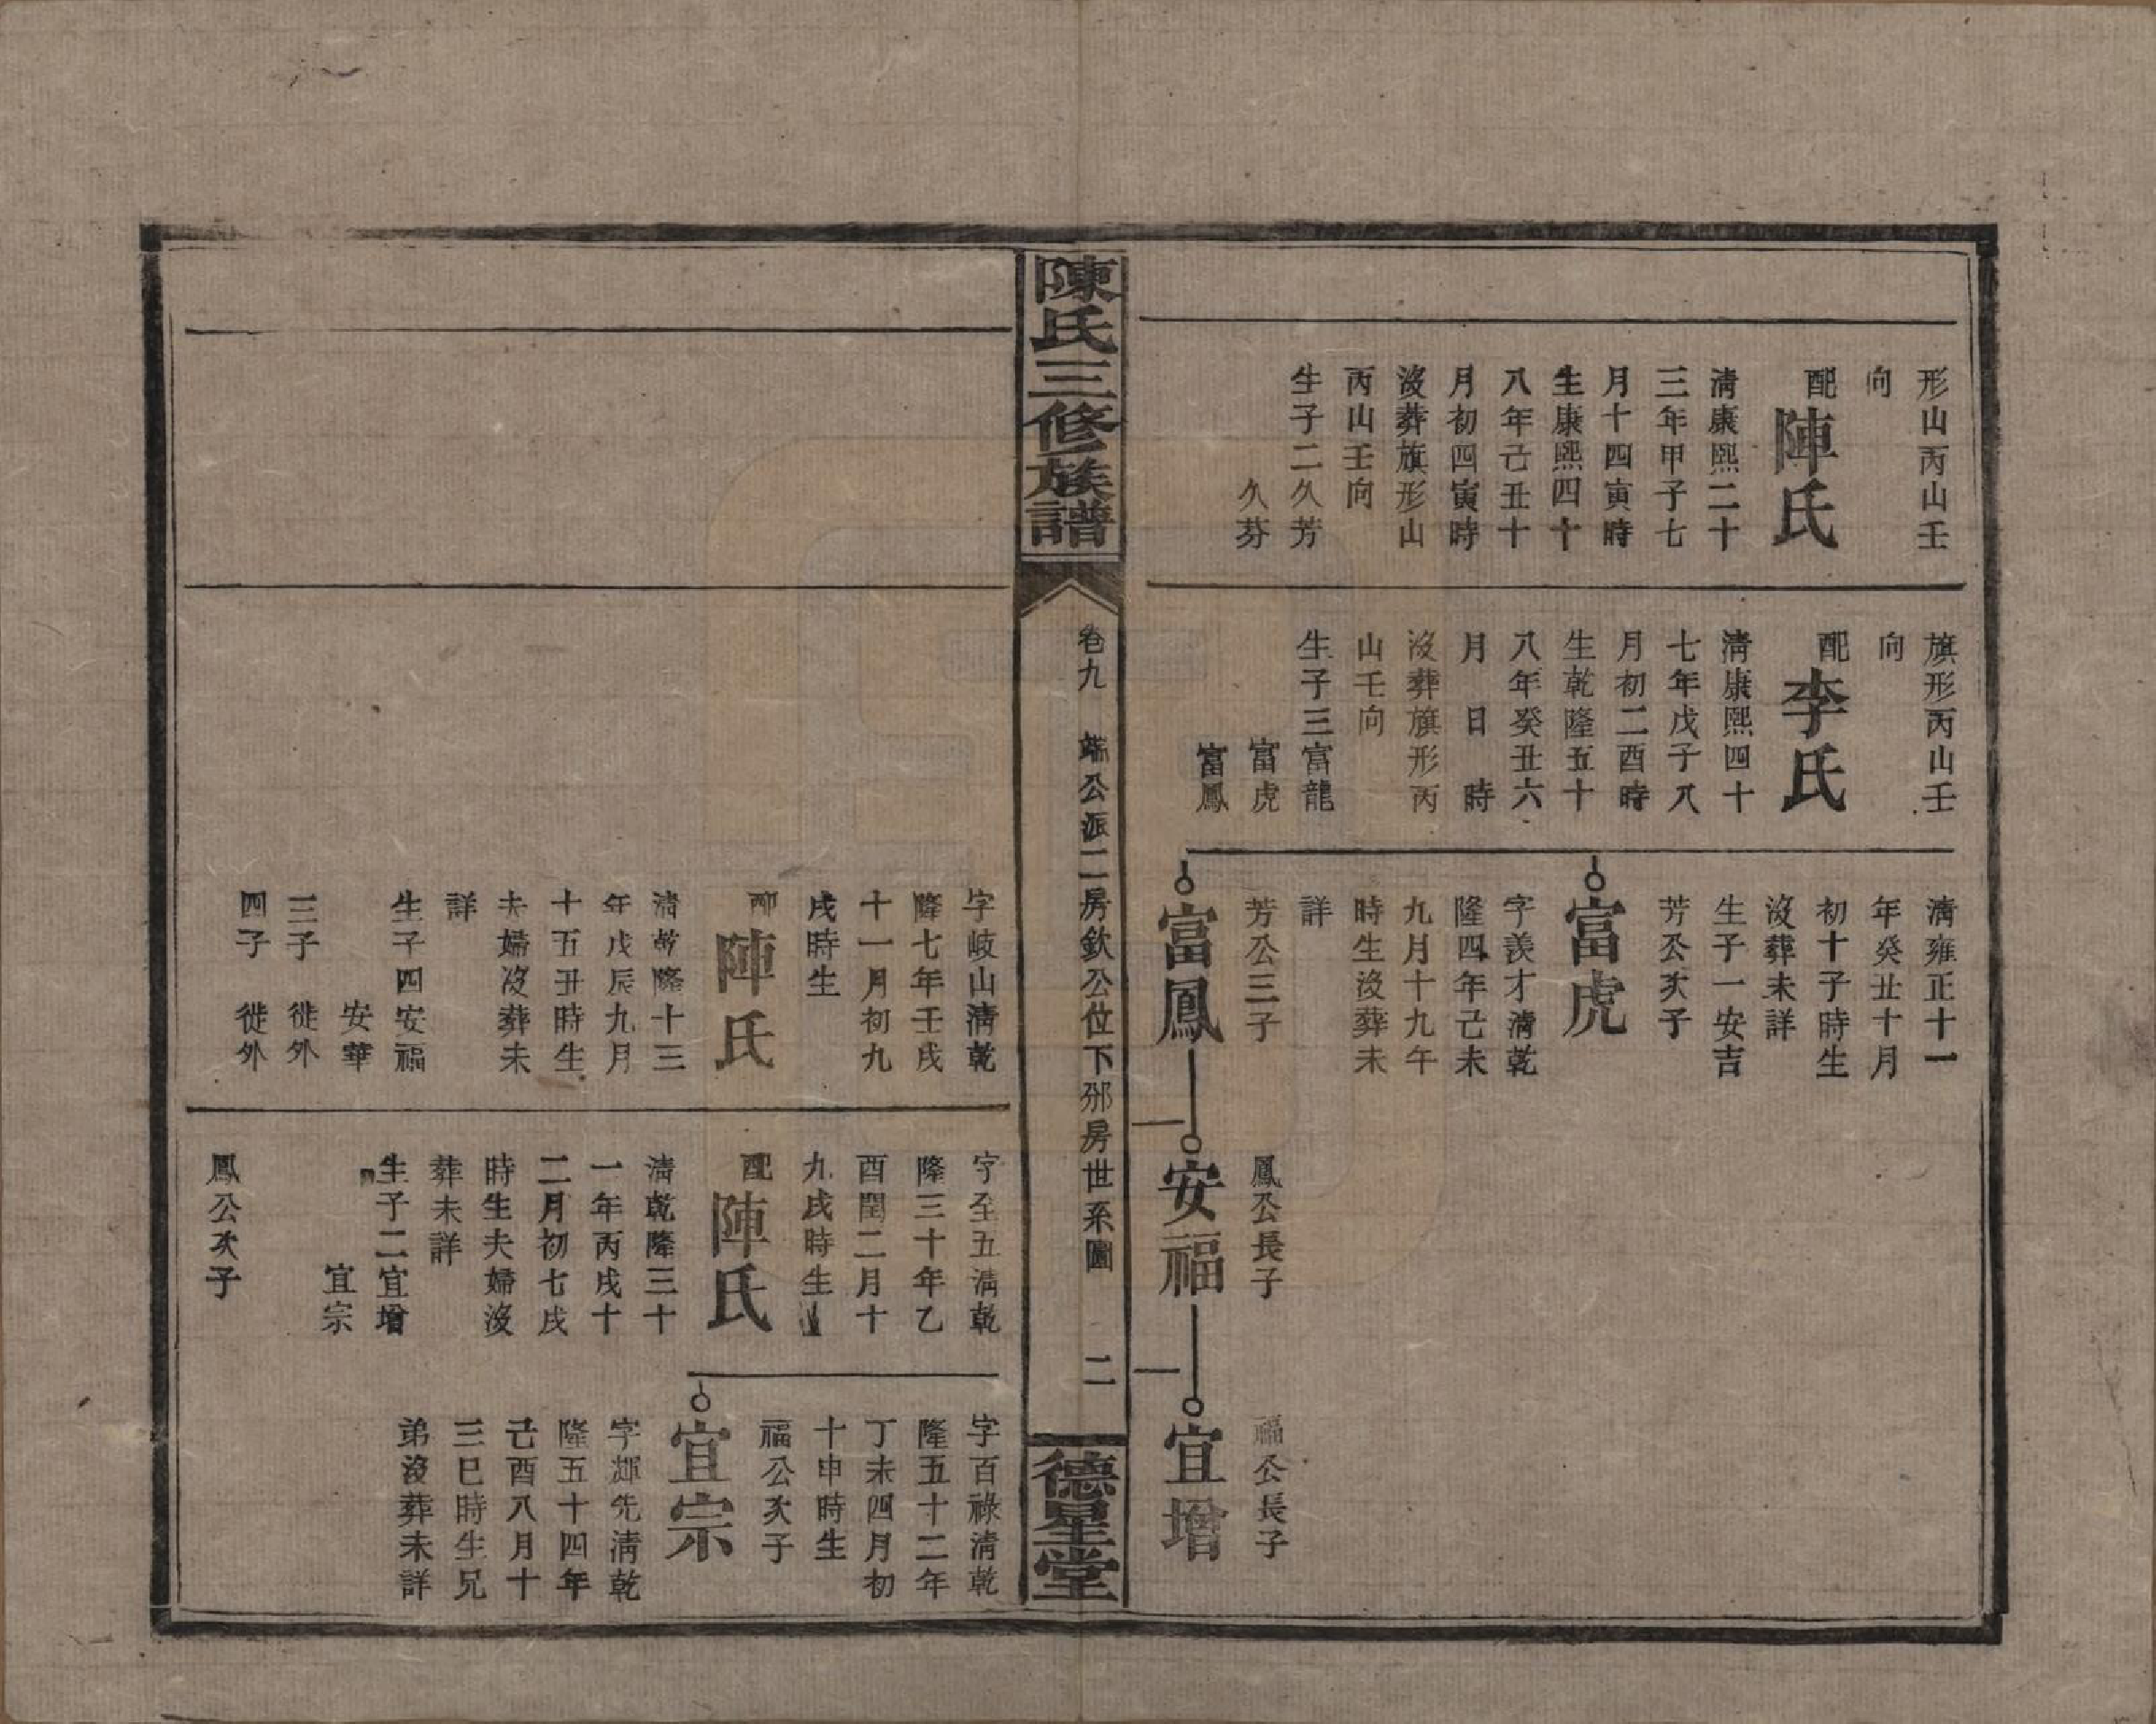 形山丙山壬
向
配
陣氏
清康熙二十
三年甲子七
月十四寅時
生康熙四十
八年己丑十
月初四寅時
沒葬旗形山
丙山壬向
生子二久芳
久芬
旗形丙山壬
向
配
李氏
清康熙四十
七年戊子八
月初二酉時
生乾隆五十
八年癸丑六
月 日 時
沒葬旗形丙
山壬向
生子三富龍
富虎
富鳳
清雍正十一
年癸丑十月
初十子時生
沒葬未詳
生子一安吉
芳公次子
富虎
字羨才清乾
隆四年己未
九月十九午
時生沒葬未
詳
芳公三子
富鳳
鳳公長子
安福
福公長子
宜增
陳氏三修族譜
卷九 端公派二房欽公位下邠房世系圖 二
德星堂
字岐山清乾
隆七年壬戌
十一月初九
戌時生
配
陣氏
清乾隆十三
年戊辰九月
十五丑時生
夫婦沒葬未
詳
生子四安福
安華
三子 徙外
四子 徙外
字至五清乾
隆三十年乙
酉閏二月十
九戌時生
配
陣氏
清乾隆三十
一年丙戌十
二月初七戌
時生夫婦沒
葬未詳
生子二宜增
宜宗
鳳公次子
字百祿清乾
隆五十二年
丁未四月初
十申時生
福公次子
宜宗
字輝先清乾
隆五十四年
己酉八月十
三巳時生兄
弟沒葬未詳